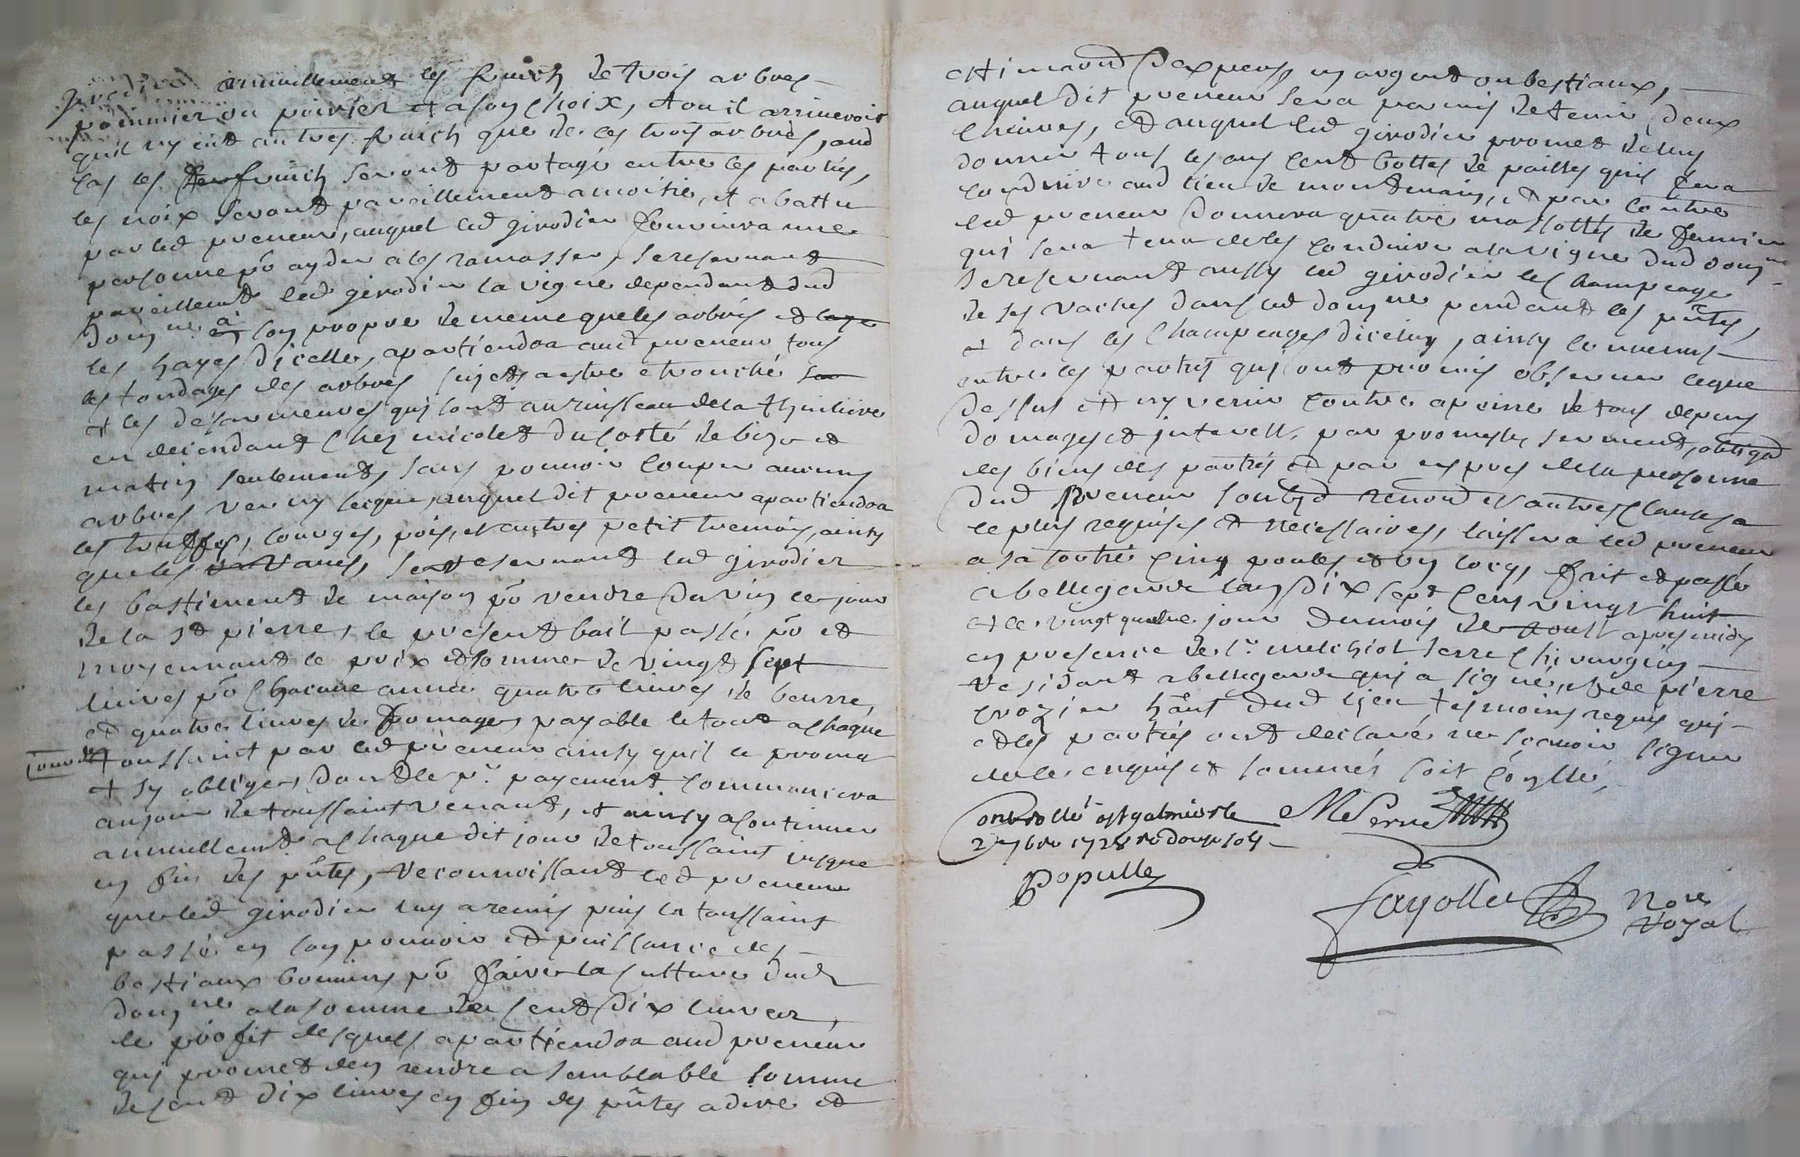 girodier annuellement les fruich de trois arbres
pommier ou poirier et a son choix, et ou il arriueroit
quil ny eut autres fruich que de ces trois arbres, aud
cas les fruich seront partagé entre les parties,
les noix seront pareillement a moitié, et abattu
par led preneur, auquel led girodier fournira une
personne po ayder a les ramasser, se reseruant
pareillemt led girodier la vigne dependant dud
domne a son propre de meme que les arbres et
les hayes dicelle, apartiendra aud preneur tous
les tondages des arbres sujets a estre etronché
et les desarmeures qui sont au ruisseau de la
en decendant chez nicolet du costé de bize et
matin seulement, sans pouuoir couper aucuns
arbres ver ny secqu, auquel dit preneur apartiendra
les truffes, courges, pois, et autres petit tremois, ainsy
que les raues, se reseruant led girodier
les bastiment de maison po vendre du vin le jour
de la st pierre, le present bail passé po et
moyennant le prix et somme de vingt sept
liures po chacune année quatre liures de beurre,
et quatre liures de fromages payable le tout a chaque
toussaint par led preneur ainsy quil a promis
et sy obliger, dont le pr payement commancera
au jour de toussaint venant, et ainsy a continuer
annuellemt a chaque dit jour de toussaint jusque
en fin des pntes, reconnoissant led preneur
que led girodier luy a remis puis la toussaint
passé en son pouuoir et puissance des
bestiaux bouuins po faire la culture dud
domne a la somme de cent dix liures,
le profit desquels apartiendra aud preneur
qui promet den rendre a semblable somme
de cent dix liures en fin des pntes a dire et
estimaõn dexpers, en argent ou bestiaux,
auquel dit preneur sera permis de tenir deux
cheures, et auquel led girodier promet de luy
donner tous les ans cent bottes de pailles quil fera
conduire aud lieu de montmain, et par contre
led preneur donnera quatre massottes de fumier
qui sera tenu de les conduire a la vigne dud domne
se reseruant aussy led girodier les champeage
de ses vaches dans led domne pendant les pntes,
et dans les champeages diceluy, ainsy conuenus
entre les parties qui ont promis obseruer ce que
dessus et ny venir contre a peine de tous depens
domages et interests, par promesse serment, obligaõn
des biens des parties et par expres de la personne
dud preneur soubzõn renonõn et autres clauses a
ce plus requises et necessaires, laissera led preneur
a sa sortie cinq poules et un cocq, fait et passé
a bellegarde lan dix sept cens vingt huit
et le vingt quatre jour du mois de aoust apres midy
en presence de sr melchiot serre chirurgien
residant a bellegarde qui a signé, et de pierre
crozier hãnt dud lieu tesmoins requis qui
et les parties ont declaré ne scauoir signer
de ce enquis et sommés soit coyllé,
Controllé a st galmier le
2e 7bre 1728 Rd douze sols
M Serre
Populle
Fayolle Nore
Royal